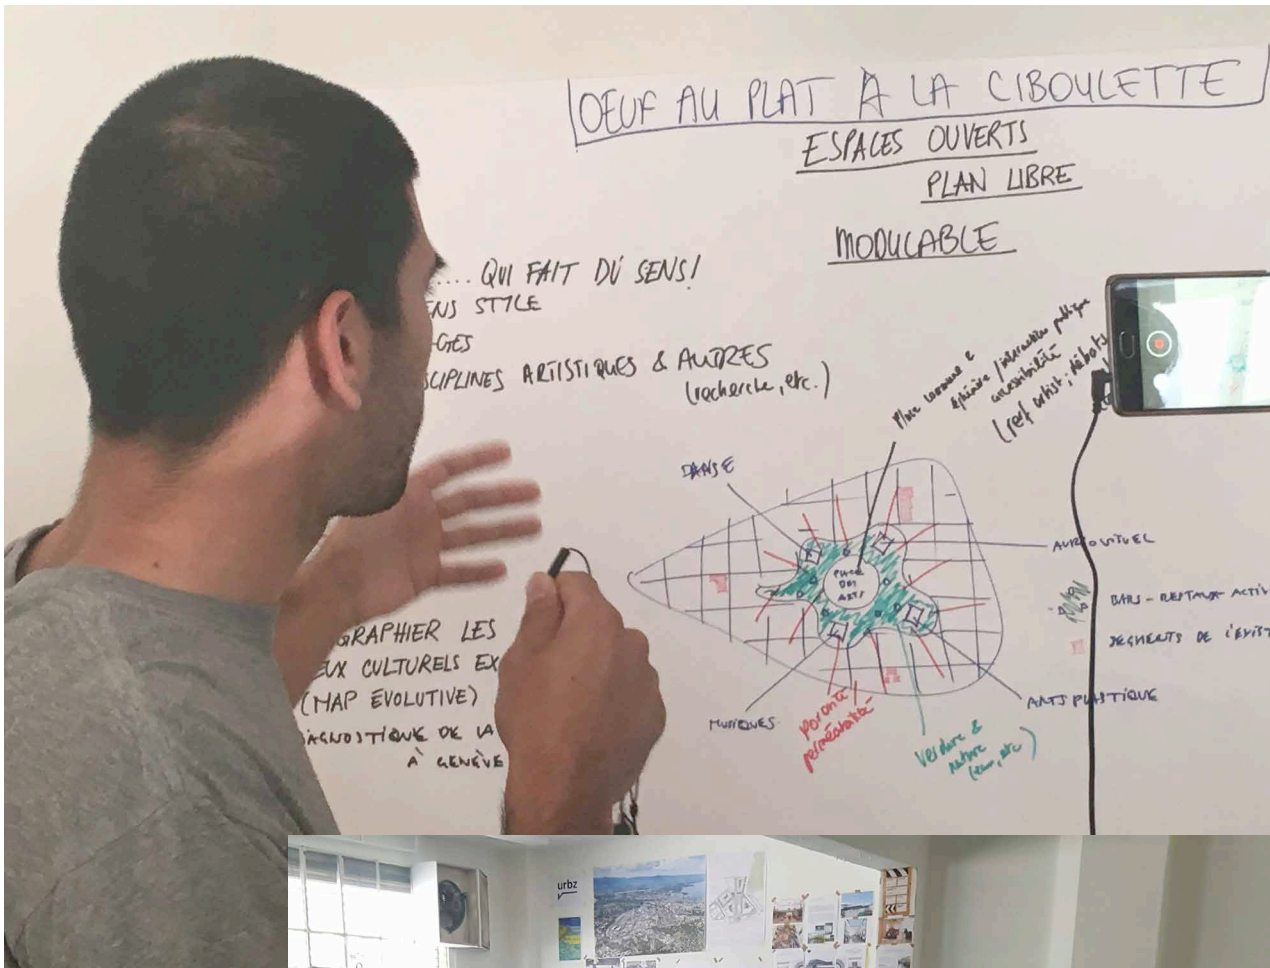 OEUF AU PLAT A LA CIBOULETTE
ESPACES OUVERTS
PLAN LIBRE
MODULABLE
.... QUI FAIT DU SENS!
NS STYLE
GES
SCIPLINES ARTISTIQUES & AUTRES
(recherche, etc.)
Place commune &
/ interaction publique
accessibilité
(ref artist, débats
DANSE
AUDIOVISUEL
PLACE
DES
ARTS
BARS - RESTAUX - ACTIV
SEGMENTS DE L'EXIST
ARTS PLASTIQUE
MUSIQUES
porosité /
perméabilité
Verdure &
nature
(eau, etc)
GRAPHIER LES
EUX CULTURELS EX
(MAP ÉVOLUTIVE)
AGNOSTIQUE DE LA
À GENÈVE
urbz